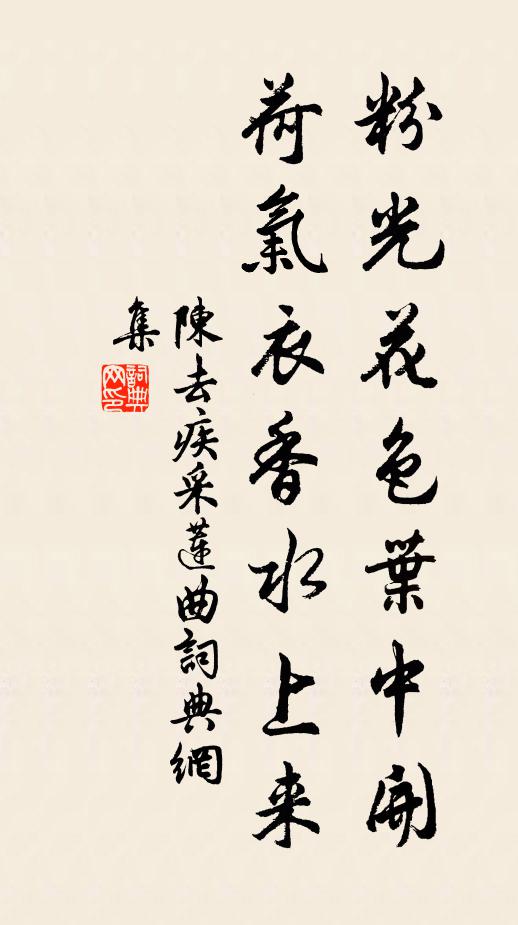 粉光花色葉中開
荷氣衣香水上来
陳去疾采蓮曲詞典網
集
詞典网印